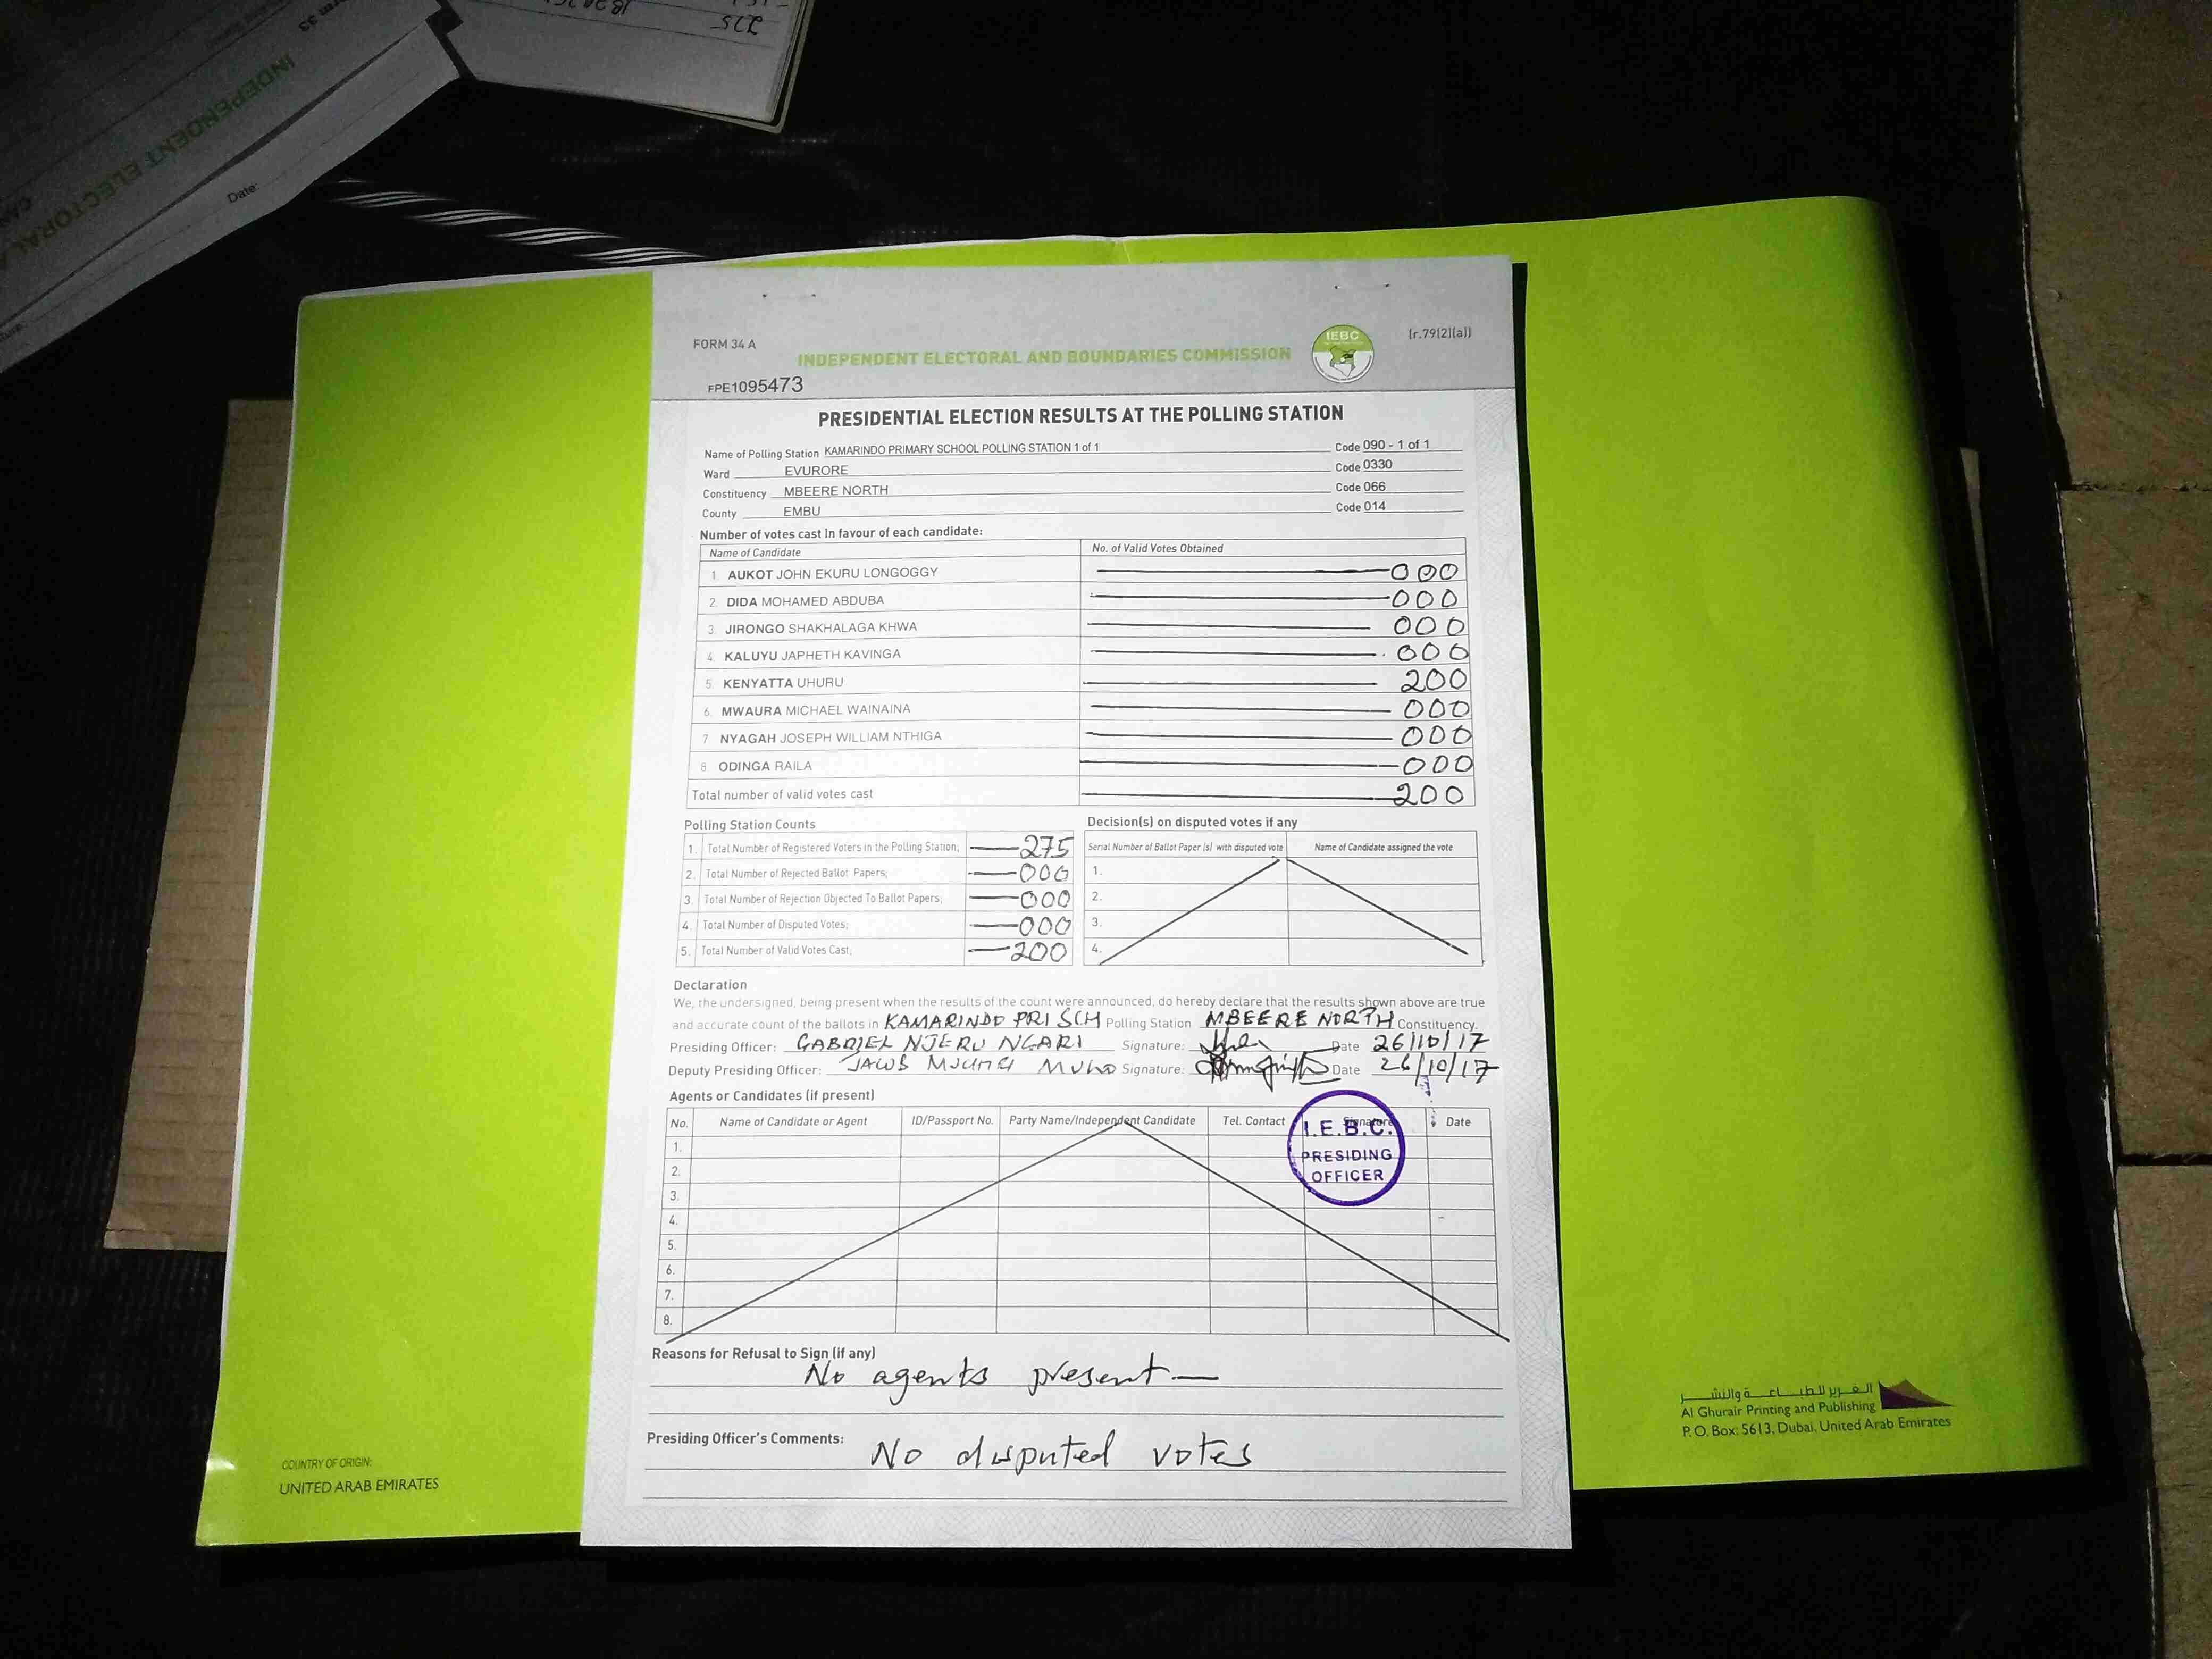 275
INDEPENDENT ELECTORAL
Date:
FORM 34 A
IEBC
(r.79(2)(a))
INDEPENDENT ELECTORAL AND BOUNDARIES COMMISSION
FPE1095473
PRESIDENTIAL ELECTION RESULTS AT THE POLLING STATION
Name of Polling Station KAMARINDO PRIMARY SCHOOL POLLING STATION 1 of 1 Code 090 - 1 of 1
Ward EVURORE Code 0330
Constituency MBEERE NORTH Code 066
County EMBU Code 014
Number of votes cast in favour of each candidate:
Name of Candidate No. of Valid Votes Obtained
1. AUKOT JOHN EKURU LONGOGGY 000
2. DIDA MOHAMED ABDUBA 000
3. JIRONGO SHAKHALAGA KHWA 000
4. KALUYU JAPHETH KAVINGA 000
5. KENYATTA UHURU 200
6. MWAURA MICHAEL WAINAINA 000
7 NYAGAH JOSEPH WILLIAM NTHIGA 000
8. ODINGA RAILA 000
Total number of valid votes cast 200
Polling Station Counts
1. Total Number of Registered Voters in the Polling Station; 275
2. Total Number of Rejected Ballot Papers; 000
3. Total Number of Rejection Objected To Ballot Papers; 000
4. Total Number of Disputed Votes; 000
5. Total Number of Valid Votes Cast; 200
Decision(s) on disputed votes if any
Serial Number of Ballot Paper (s) with disputed vote Name of Candidate assigned the vote
1.
2.
3.
4.
Declaration
We, the undersigned, being present when the results of the count were announced, do hereby declare that the results shown above are true
and accurate count of the ballots in KAMARINDO PRI SCH Polling Station MBEERE NORTH Constituency.
Presiding Officer: GABRIEL NJERU NGARI Signature: Date 26/10/17
Deputy Presiding Officer: Signature: Date 26/10/17
Agents or Candidates (if present)
No. Name of Candidate or Agent ID/Passport No. Party Name/Independent Candidate Tel. Contact Signature Date
1.
2.
3.
4.
5.
6.
7.
8.
I.E.B.C.
PRESIDING
OFFICER
Reasons for Refusal to Sign (if any)
No agents present
Presiding Officer's Comments:
No disputed votes
COUNTRY OF ORIGIN:
UNITED ARAB EMIRATES
الغرير للطباعة والنشر
Al Ghurair Printing and Publishing
P. O. Box: 5613, Dubai, United Arab Emirates